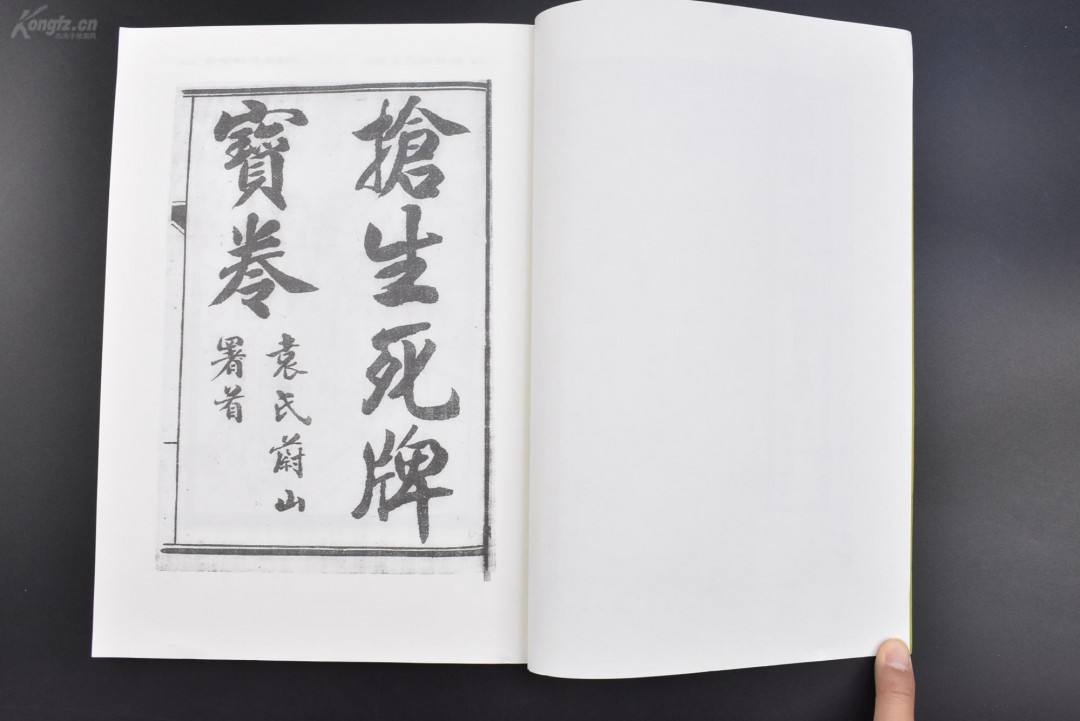 搶生死牌
寶卷
袁氏蔚山
署首
Kongfz.cn